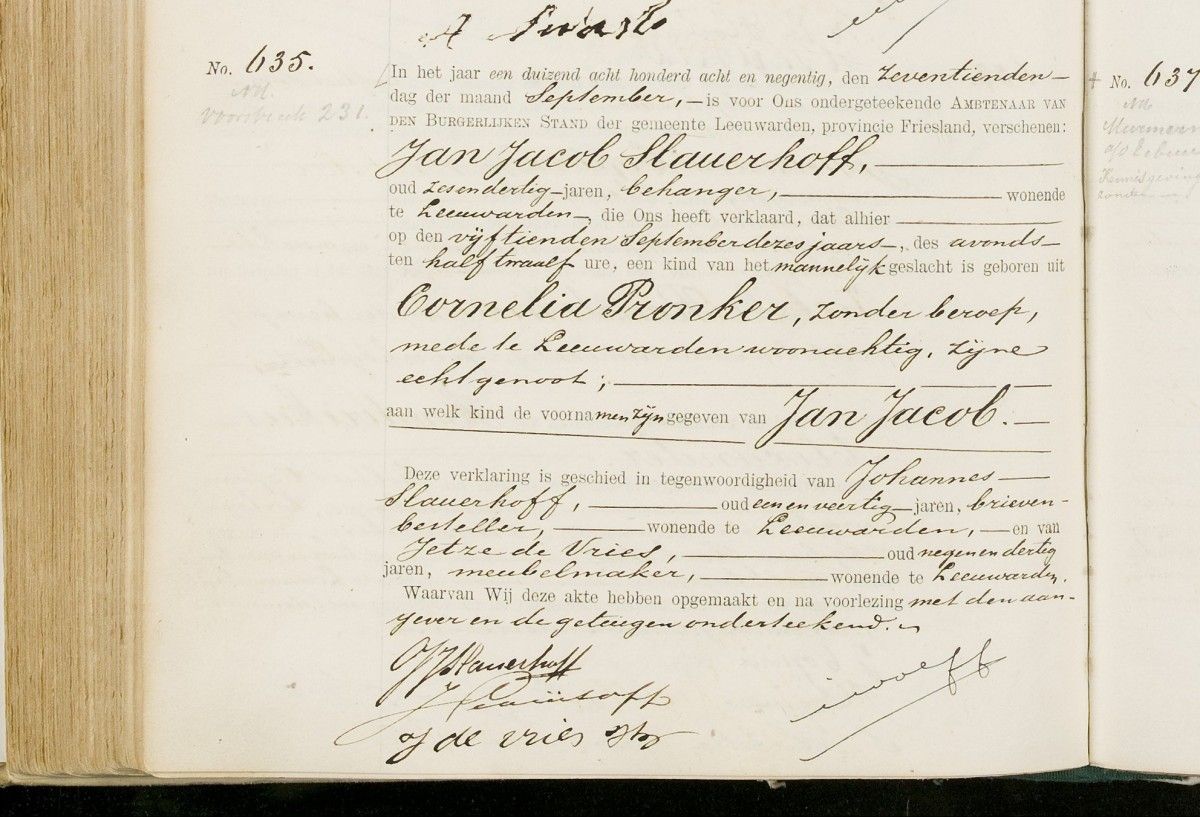 A Swart
No. 635.
Voorstreek 231.
In het jaar een duizend acht honderd acht en negentig, den zeventienden
dag der maand September, is voor Ons ondergeteekende AMBTENAAR VAN
DEN BURGERLIJKEN STAND der gemeente Leeuwarden, provincie Friesland, verschenen:
Jan Jacob Slauerhoff,
oud zesendertig jaren, behanger, wonende
te Leeuwarden, die Ons heeft verklaard, dat alhier
op den vijftienden September dezes jaars, des avonds
ten half twaalf ure, een kind van het mannelijk geslacht is geboren uit
Cornelia Pronker, zonder beroep,
mede te Leeuwarden woonachtig, zijne
echtgenoot;
aan welk kind de voornamen zijn gegeven van Jan Jacob.
Deze verklaring is geschied in tegenwoordigheid van Johannes
Slauerhoff, oud een en veertig jaren, brieven-
besteller, wonende te Leeuwarden, en van
Jetze de Vries, oud negen en dertig
jaren, meubelmaker, wonende te Leeuwarden.
Waarvan Wij deze akte hebben opgemaakt en na voorlezing met den aan-
gever en de getuigen onderteekend.
JJ Slauerhoff
J Slauerhoff
J de Vries
wolff
No. 637